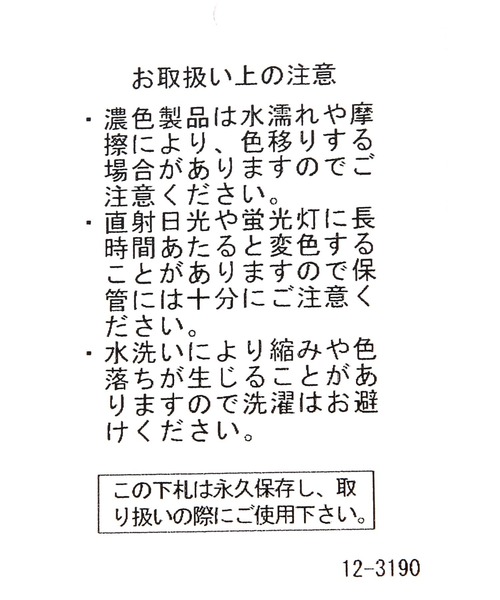 お取扱い上の注意
・濃色製品は水濡れや摩
擦により、色移りする
場合がありますのでご
注意ください。
・直射日光や蛍光灯に長
時間あたると変色する
ことがありますので保
管には十分にご注意く
ださい。
・水洗いにより縮みや色
落ちが生じることがあ
りますので洗濯はお避
けください。
この下札は永久保存し、取
り扱いの際にご使用下さい。
12-3190